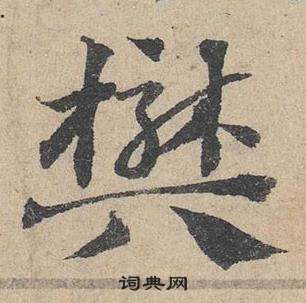 樊
词典网